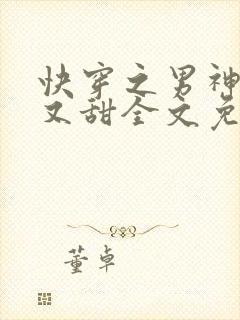 快穿之男神
又甜全文免
董卓